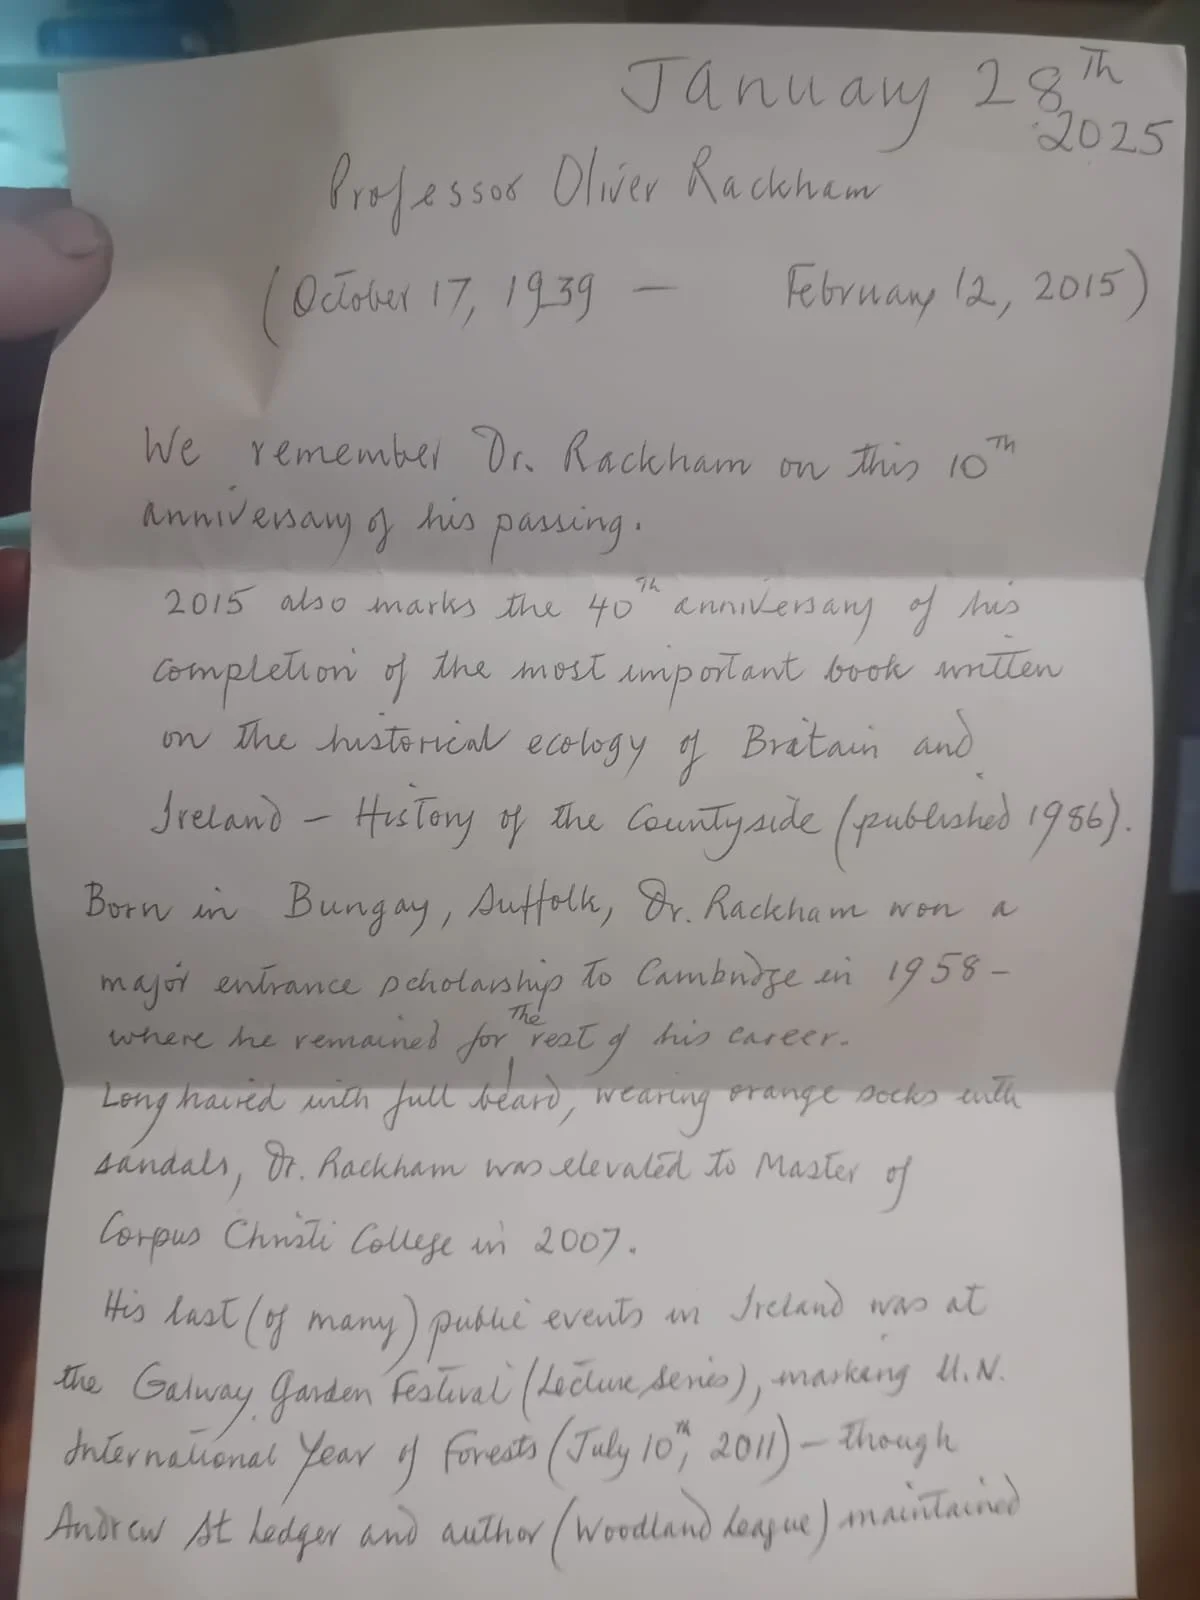 January 28Th
2025
Professor Oliver Rackham
(October 17, 1939 — February 12, 2015)
We remember Dr. Rackham on this 10Th
anniversary of his passing.
2015 also marks the 40Th anniversary of his
completion of the most important book written
on the historical ecology of Britain and
Ireland – History of the Countyside (published 1986).
Born in Bungay, Suffolk, Dr. Rackham won a
major entrance scholarship to Cambridge in 1958 –
where he remained for the rest of his career.
Long haired with full beard, wearing orange socks with
sandals, Dr. Rackham was elevated to Master of
Corpus Christi College in 2007.
His last (of many) public events in Ireland was at
the Galway Garden Festival (Lecture Series), marking U.N.
International Year of Forests (July 10th, 2011) – though
Andrew St Ledger and author (Woodland League) maintained